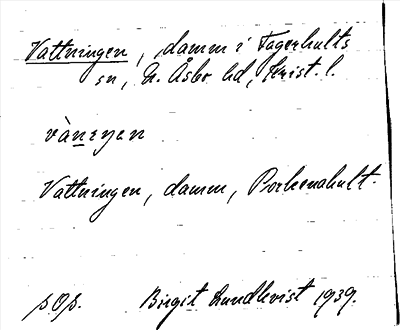 Vattningen, damm i Fagerhults
sn, N. Åsbo hd, Krist. l.
Vattningen, damm, Porkenahult.
p.O.p. Birgit Lundkvist 1939.